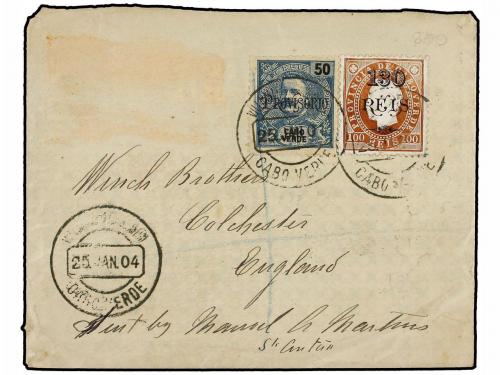 50
PROVISORIO
CABO VERDE
PROVINCIA DE CABO VERDE
130
REIS
100 REIS 100
CABO VERDE
CABO VERDE
Winch Brothers
Colchester
England
25 JAN. 04
CABO VERDE
Sent by Manuel A Martins
St. Antão